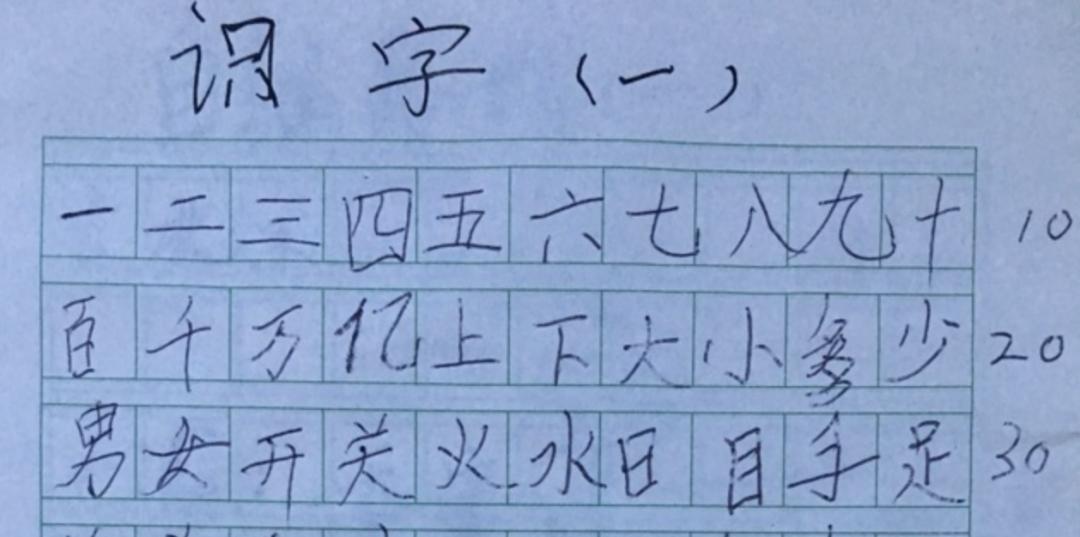 识字（一）
一二三四五六七八九十 10
百千万亿上下大小多少 20
男女开关火水日目手足 30